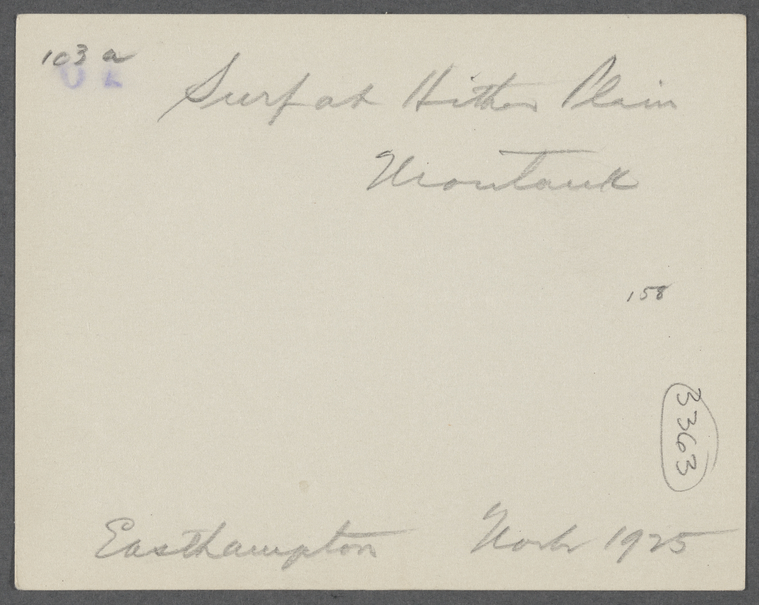 103 a
OK
Surf at Hither Plain
Montauk
158
3363
Easthampton Novbr 1925